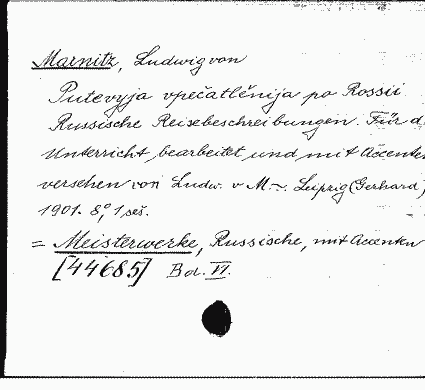 Marnitz, Ludwig von
Putevyja vpečatlěnija po Rossii
Russische Reisebeschreibungen. Für d
Unterricht bearbeitet und mit Accenten
versehen von Ludw. v M—. Leipzig (Gerhard)
1901. 8.° 1 seš.
= Meisterwerke, Russische, mit Accenten
[44685] Bd. VI.